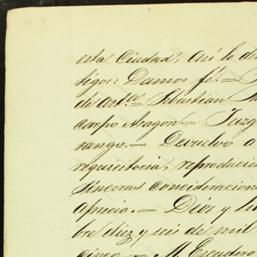 esta Ciudad; así lo di
tigos: Damos fé.—
de ant.ce Sebastian
corpo Aragon.— Juzg
rango.— Devuelvo a
requisitoria, reproducien
sinceras consideracion
aprecio.— Dios y
bre diez y seis de mil
cinco — M. Escudero